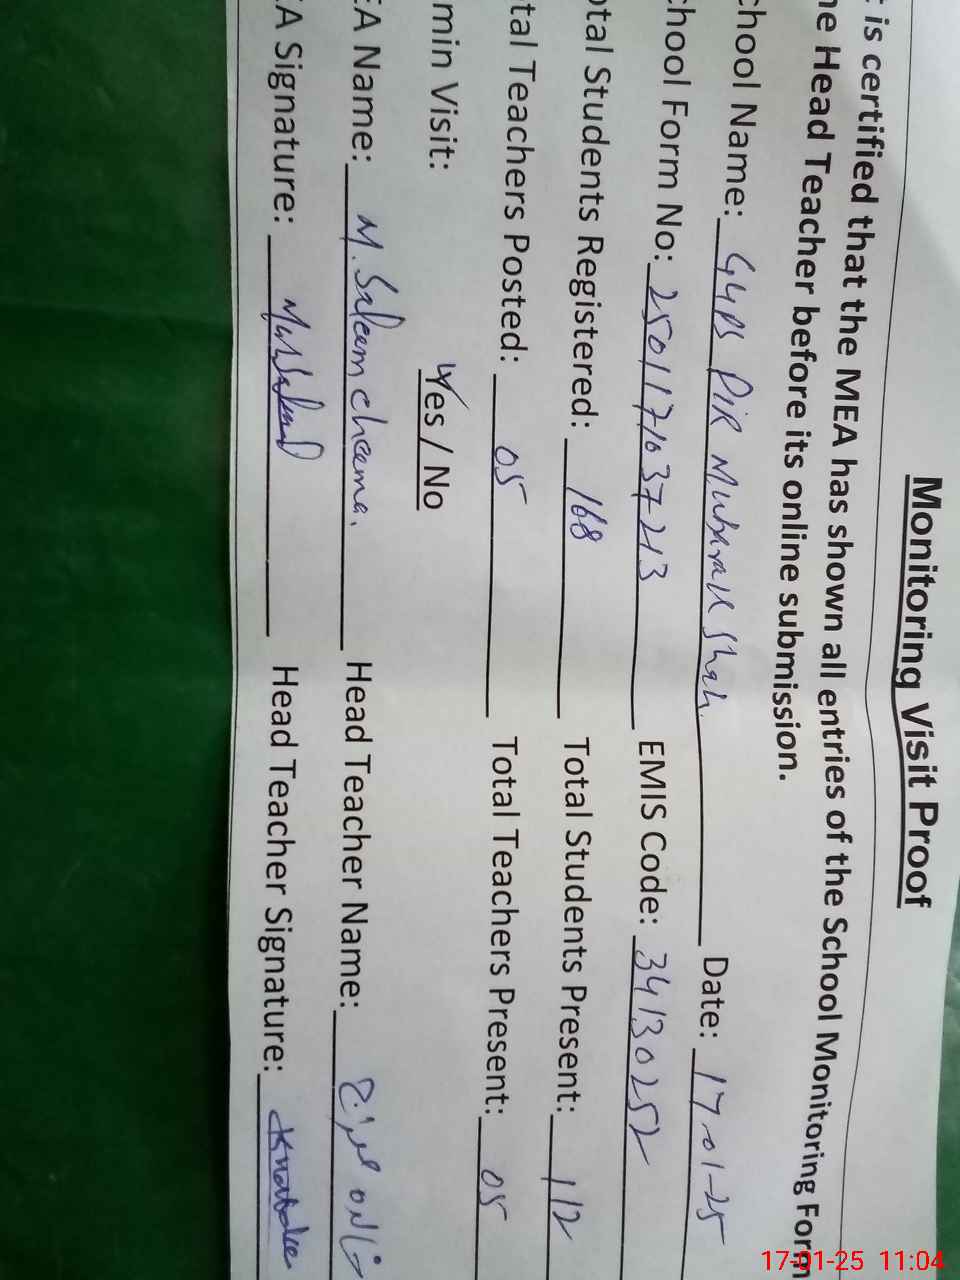 Monitoring Visit Proof
t is certified that the MEA has shown all entries of the School Monitoring Form
he Head Teacher before its online submission.
chool Name: GGPS PIR Mubarak Shah Date: 17-01-25
chool Form No: 2501171037213 EMIS Code: 34130252
otal Students Registered: 168 Total Students Present: 112
tal Teachers Posted: 05 Total Teachers Present: 05
min Visit: Yes / No
EA Name: M. Saleem cheema. Head Teacher Name:
EA Signature: Head Teacher Signature:
17-01-25 11:04